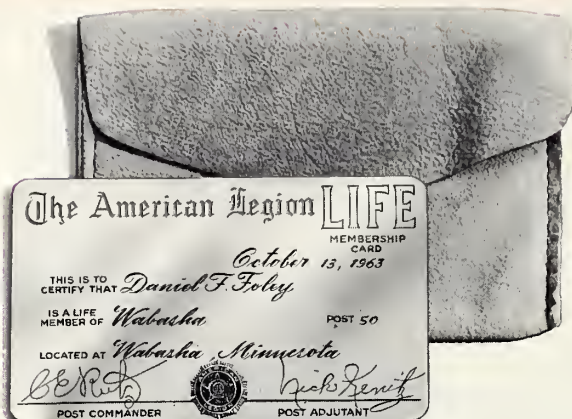 The American Legion LIFE
MEMBERSHIP
CARD
October 13, 1963
THIS IS TO
CERTIFY THAT Daniel F. Foley
IS A LIFE
MEMBER OF Wabasha POST 50
LOCATED AT Wabasha, Minnesota
POST COMMANDER POST ADJUTANT